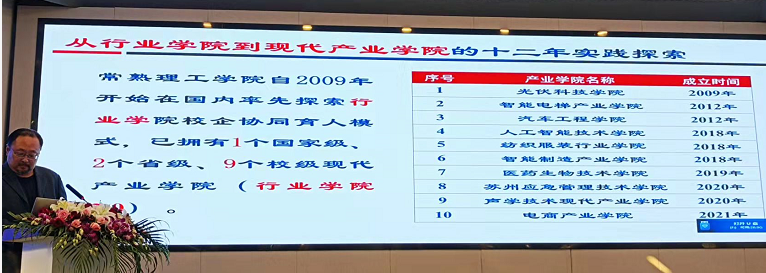 从行业学院到现代产业学院的十二年实践探索
常熟理工学院自2009年
开始在国内率先探索行
业学院校企协同育人模
式，已拥有1个国家级、
2个省级、9个校级现代
产业学院（行业学院
）。
序号 产业学院名称 成立时间
1 光伏科技学院 2009年
2 智能电梯产业学院 2012年
3 汽车工程学院 2012年
4 人工智能技术学院 2018年
5 纺织服装行业学院 2018年
6 智能制造产业学院 2018年
7 医药生物技术学院 2019年
8 苏州应急管理技术学院 2020年
9 声学技术现代产业学院 2020年
10 电商产业学院 2021年